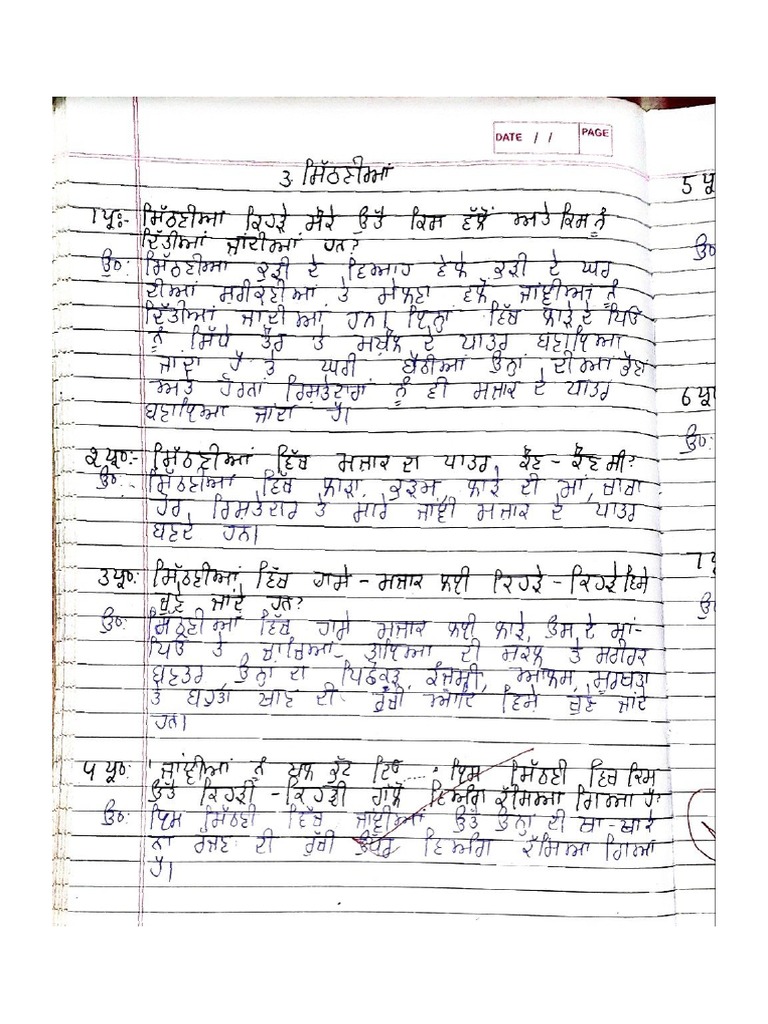 DATE / / PAGE
3 ਸਿੱਠਣੀਆਂ
1 ਪ੍ਰ:- ਸਿੱਠਣੀਆਂ ਕਿਹੜੇ ਮੌਕੇ ਉਤੇ ਕਿਸ ਵੱਲੋਂ ਅਤੇ ਕਿਸ ਨੂੰ
ਦਿੱਤੀਆਂ ਜਾਂਦੀਆਂ ਹਨ?
ਉ0: ਸਿੱਠਣੀਆਂ ਕੁੜੀ ਦੇ ਵਿਆਹ ਵੇਲੇ ਕੁੜੀ ਦੇ ਘਰ
ਦੀਆਂ ਸ਼ਰੀਕਣੀਆਂ ਤੇ ਮੇਲਣਾ ਵਲੋਂ ਜਾਂਞੀਆਂ ਨੂੰ
ਦਿੱਤੀਆਂ ਜਾਂਦੀਆਂ ਹਨ। ਇਨ੍ਹਾਂ ਵਿੱਚ ਲਾੜੇ ਦੇ ਪਿਓ
ਨੂੰ ਸਿੱਧੇ ਤੌਰ ਤੇ ਮਖ਼ੌਲ ਦੇ ਪਾਤਰ ਬਣਾਇਆ
ਜਾਂਦਾ ਹੈ ਤੇ ਘਰੀਂ ਬੈਠੀਆਂ ਉਨ੍ਹਾਂ ਦੀਆਂ ਭੈਣਾਂ
ਅਤੇ ਹੋਰਨਾਂ ਰਿਸ਼ਤੇਦਾਰਾਂ ਨੂੰ ਵੀ ਮਜ਼ਾਕ ਦੇ ਪਾਤਰ
ਬਣਾਇਆ ਜਾਂਦਾ ਹੈ।
2 ਪ੍ਰ0:- ਸਿੱਠਣੀਆਂ ਵਿੱਚ ਮਜ਼ਾਕ ਦਾ ਪਾਤਰ ਕੌਣ-ਕੌਣ ਸੀ?
ਉ0:- ਸਿੱਠਣੀਆਂ ਵਿੱਚ ਲਾੜਾ, ਕੁੜਮ, ਲਾੜੇ ਦੀ ਮਾਂ, ਚਾਚਾ
ਹੋਰ, ਰਿਸ਼ਤੇਦਾਰ ਤੇ ਸਾਰੇ ਜਾਂਞੀ ਮਜ਼ਾਕ ਦੇ ਪਾਤਰ
ਬਣਦੇ ਹਨ।
3 ਪ੍ਰ0: ਸਿੱਠਣੀਆਂ ਵਿੱਚ ਹਾਸੇ-ਮਜ਼ਾਕ ਲਈ ਕਿਹੜੇ-ਕਿਹੜੇ ਵਿਸੇ
ਚੁਣੇ ਜਾਂਦੇ ਹਨ?
ਉ0: ਸਿੱਠਣੀਆਂ ਵਿੱਚ ਹਾਸੇ ਮਜ਼ਾਕ ਲਈ ਲਾੜੇ, ਉਸ ਦੇ ਮਾਂ-
ਪਿਓ ਤੇ ਚਾਚਿਆਂ-ਤਾਇਆਂ ਦੀ ਸ਼ਕਲ ਤੇ ਸਰੀਰਕ
ਬਣਤਰ ਉਨ੍ਹਾਂ ਦਾ ਪਿਛੋਕੜ, ਕੰਜੂਸੀ, ਆਲਸ, ਮੂਰਖਤਾ
ਤੇ ਬਹੁਤਾ ਖਾਣ ਦੀ ਰੁਚੀ ਆਦਿ ਵਿਸ਼ੇ ਚੁਣੇ ਜਾਂਦੇ
ਹਨ।
4 ਪ੍ਰ0: 'ਜਾਂਞੀਆਂ ਨੂੰ ਕੁੱਟ ਇਸ ਸਿੱਠਣੀ ਵਿਚ ਕਿਸ
ਉਤੇ ਕਿਹੜੀ-ਕਿਹੜੀ ਗੱਲੋਂ ਵਿਅੰਗ ਕੱਸਿਆ ਗਿਆ ਹੈ?
ਉ0: ਇਸ ਸਿੱਠਣੀ ਵਿੱਚ ਜਾਂਞੀਆਂ ਉਤੇ ਉਨ੍ਹਾਂ ਦੀ ਖਾ-ਖਾਕੇ
ਨਾ ਰੱਜਣ ਦੀ ਰੁੱਚੀ ਉਪਰ ਵਿਅੰਗ ਕੱਸਿਆ ਗਿਆ
ਹੈ।
5 ਪ੍ਰ
ਉ0
6 ਪ੍ਰ
ਉ0:
7 ਪ੍ਰ
ਉ0